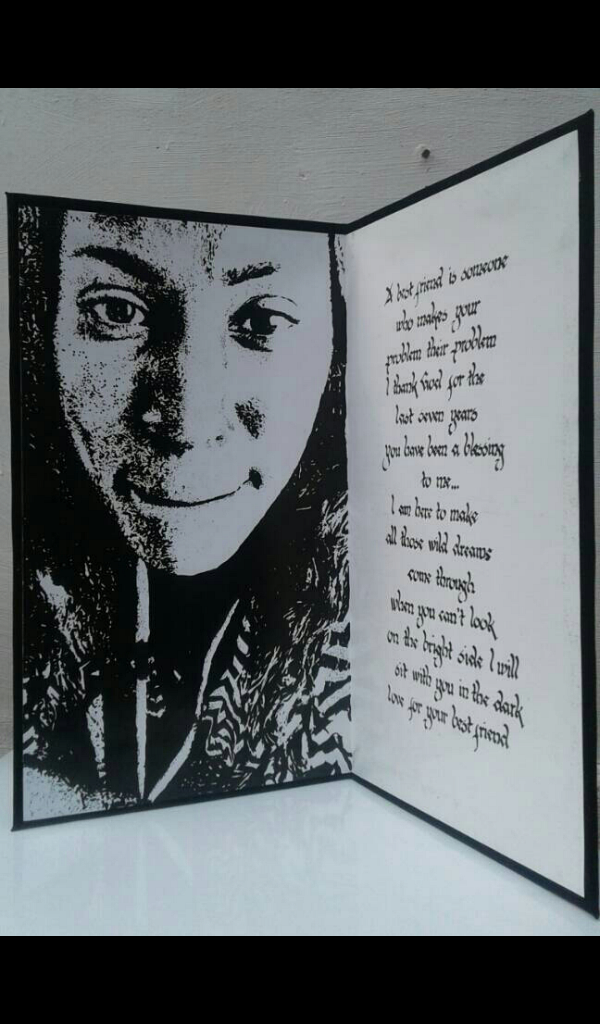 A best friend is someone
who makes your
problem their problem
I thank God for the
last seven years
you have been a blessing
to me...
I am here to make
all those wild dreams
come through
when you can't look
on the bright side I will
sit with you in the dark
love for your best friend